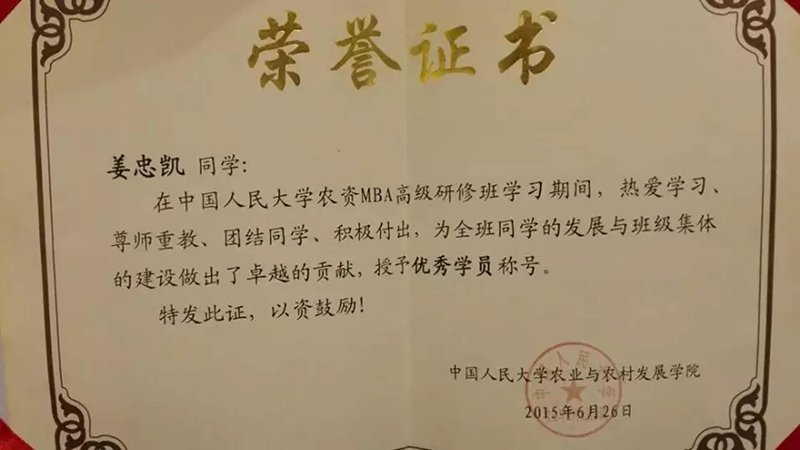 荣誉证书
姜忠凯 同学:
在中国人民大学农资MBA高级研修班学习期间，热爱学习、
尊师重教、团结同学、积极付出，为全班同学的发展与班级集体
的建设做出了卓越的贡献，授予优秀学员称号。
特发此证，以资鼓励!
中国人民大学农业与农村发展学院
2015年6月26日